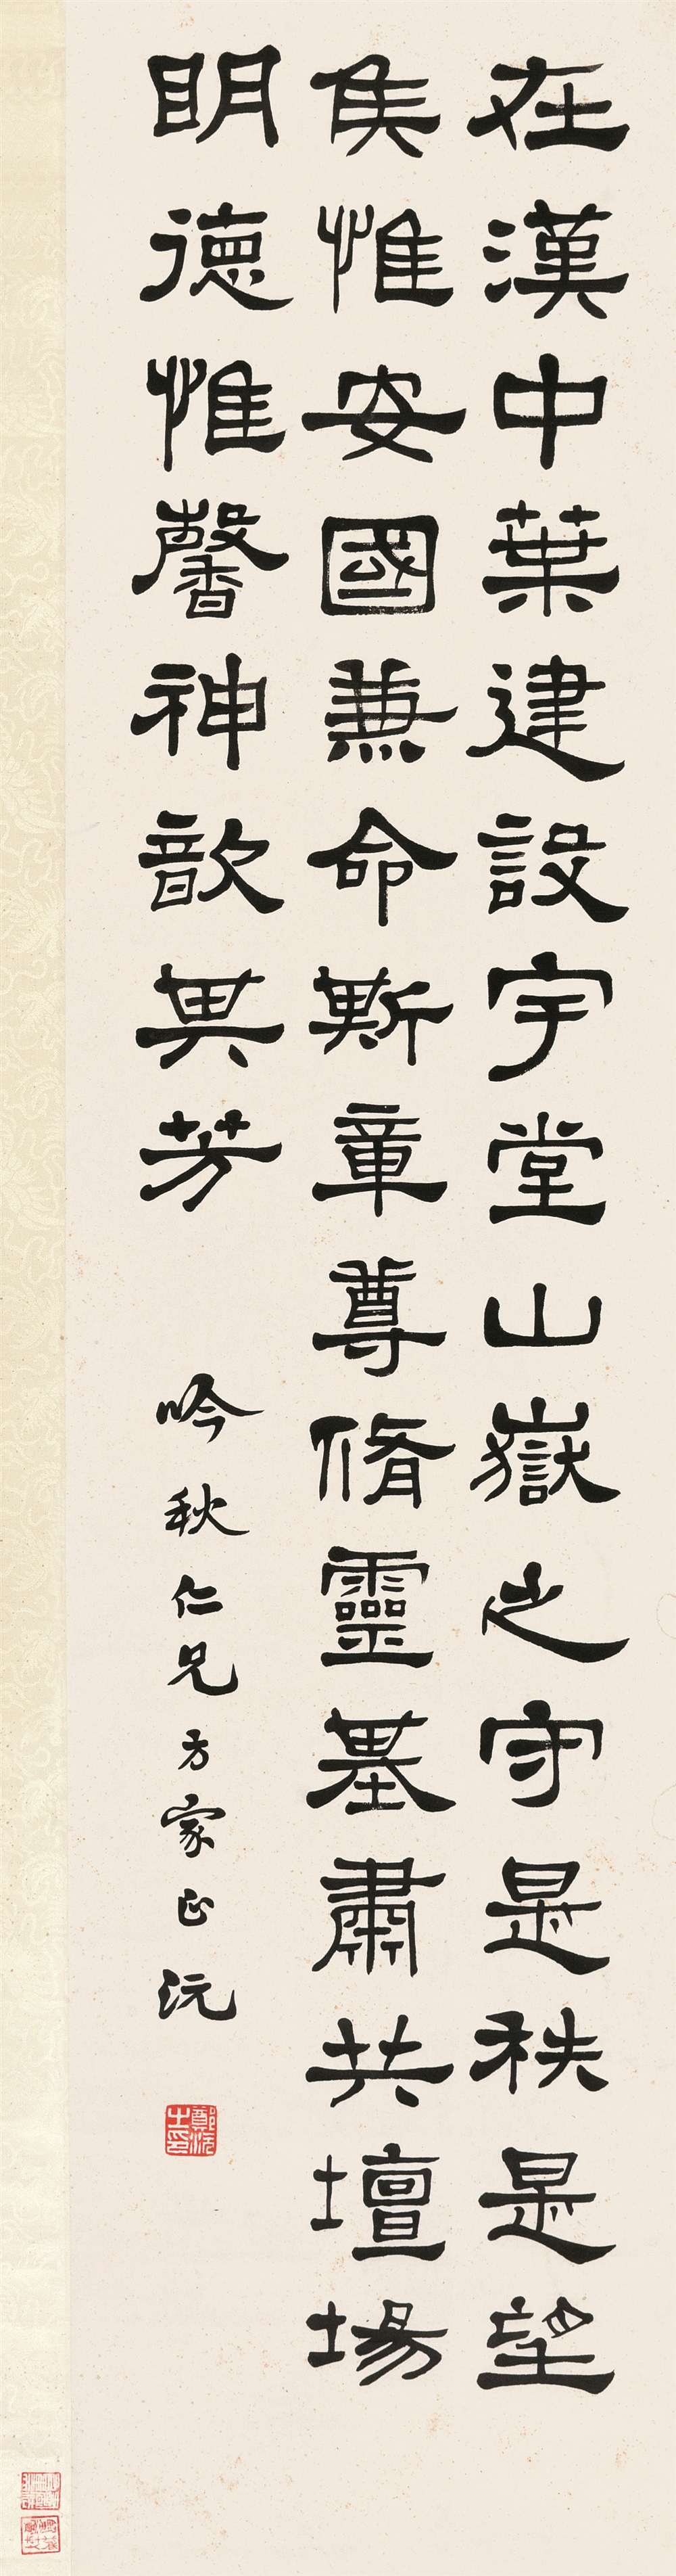 在漢中葉建設宇堂山嶽之守是秩是望
侯惟安國兼命斯章尊脩靈基肅共壇場
明德惟馨神歆其芳
吟秋仁兄方家正 沅
鄭沅之印